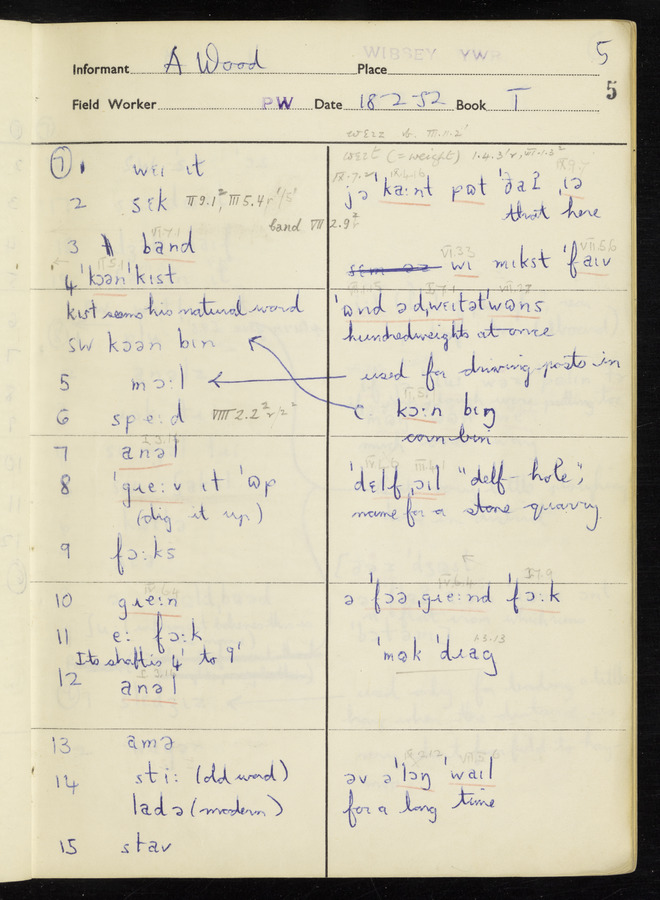 WIBSEY YWR
5
Informant A Wood Place
5
Field Worker PW Date 18-2-52 Book I
⑦ 1 wɛɪ ɪt
wɛɪt (= weight) 1.4.3'r, VI.1.3²
2 sɛk II 9.1², III 5.4 r'/5'
jə 'ka:nt pɒt 'ðaɪ ˌɪə
that here
band VII 2.9²
3 band
4 'kɔən'kɪst
sɛm əz wi mɪkst 'faɪv
kɪst seems his natural word
'ʊnd əd,wɛɪtət'wɒns
hundredweights at once
sw kɔən bɪn
5 mɔ:l
used for driving posts in
6 spe:d VIII 2.2²r/2²
kɔ:n bɪŋ
corn bin
7 anəl
8 'gɪe:v ɪt 'ʊp
(dig it up)
'dɛlf,ɔɪl "delf-hole";
name for a stone quarry
9 fɔ:ks
10 gɪe:n
ə 'fɔə,gɪe:nd 'fɔ:k
11 e: fɔ:k
Its shaft is 4' to 9'
'mək 'dɪag
12 anəl
13 amə
14 sti: (old word)
əv ə'lɔŋ 'waɪl
ladə (modern)
for a long time
15 stav